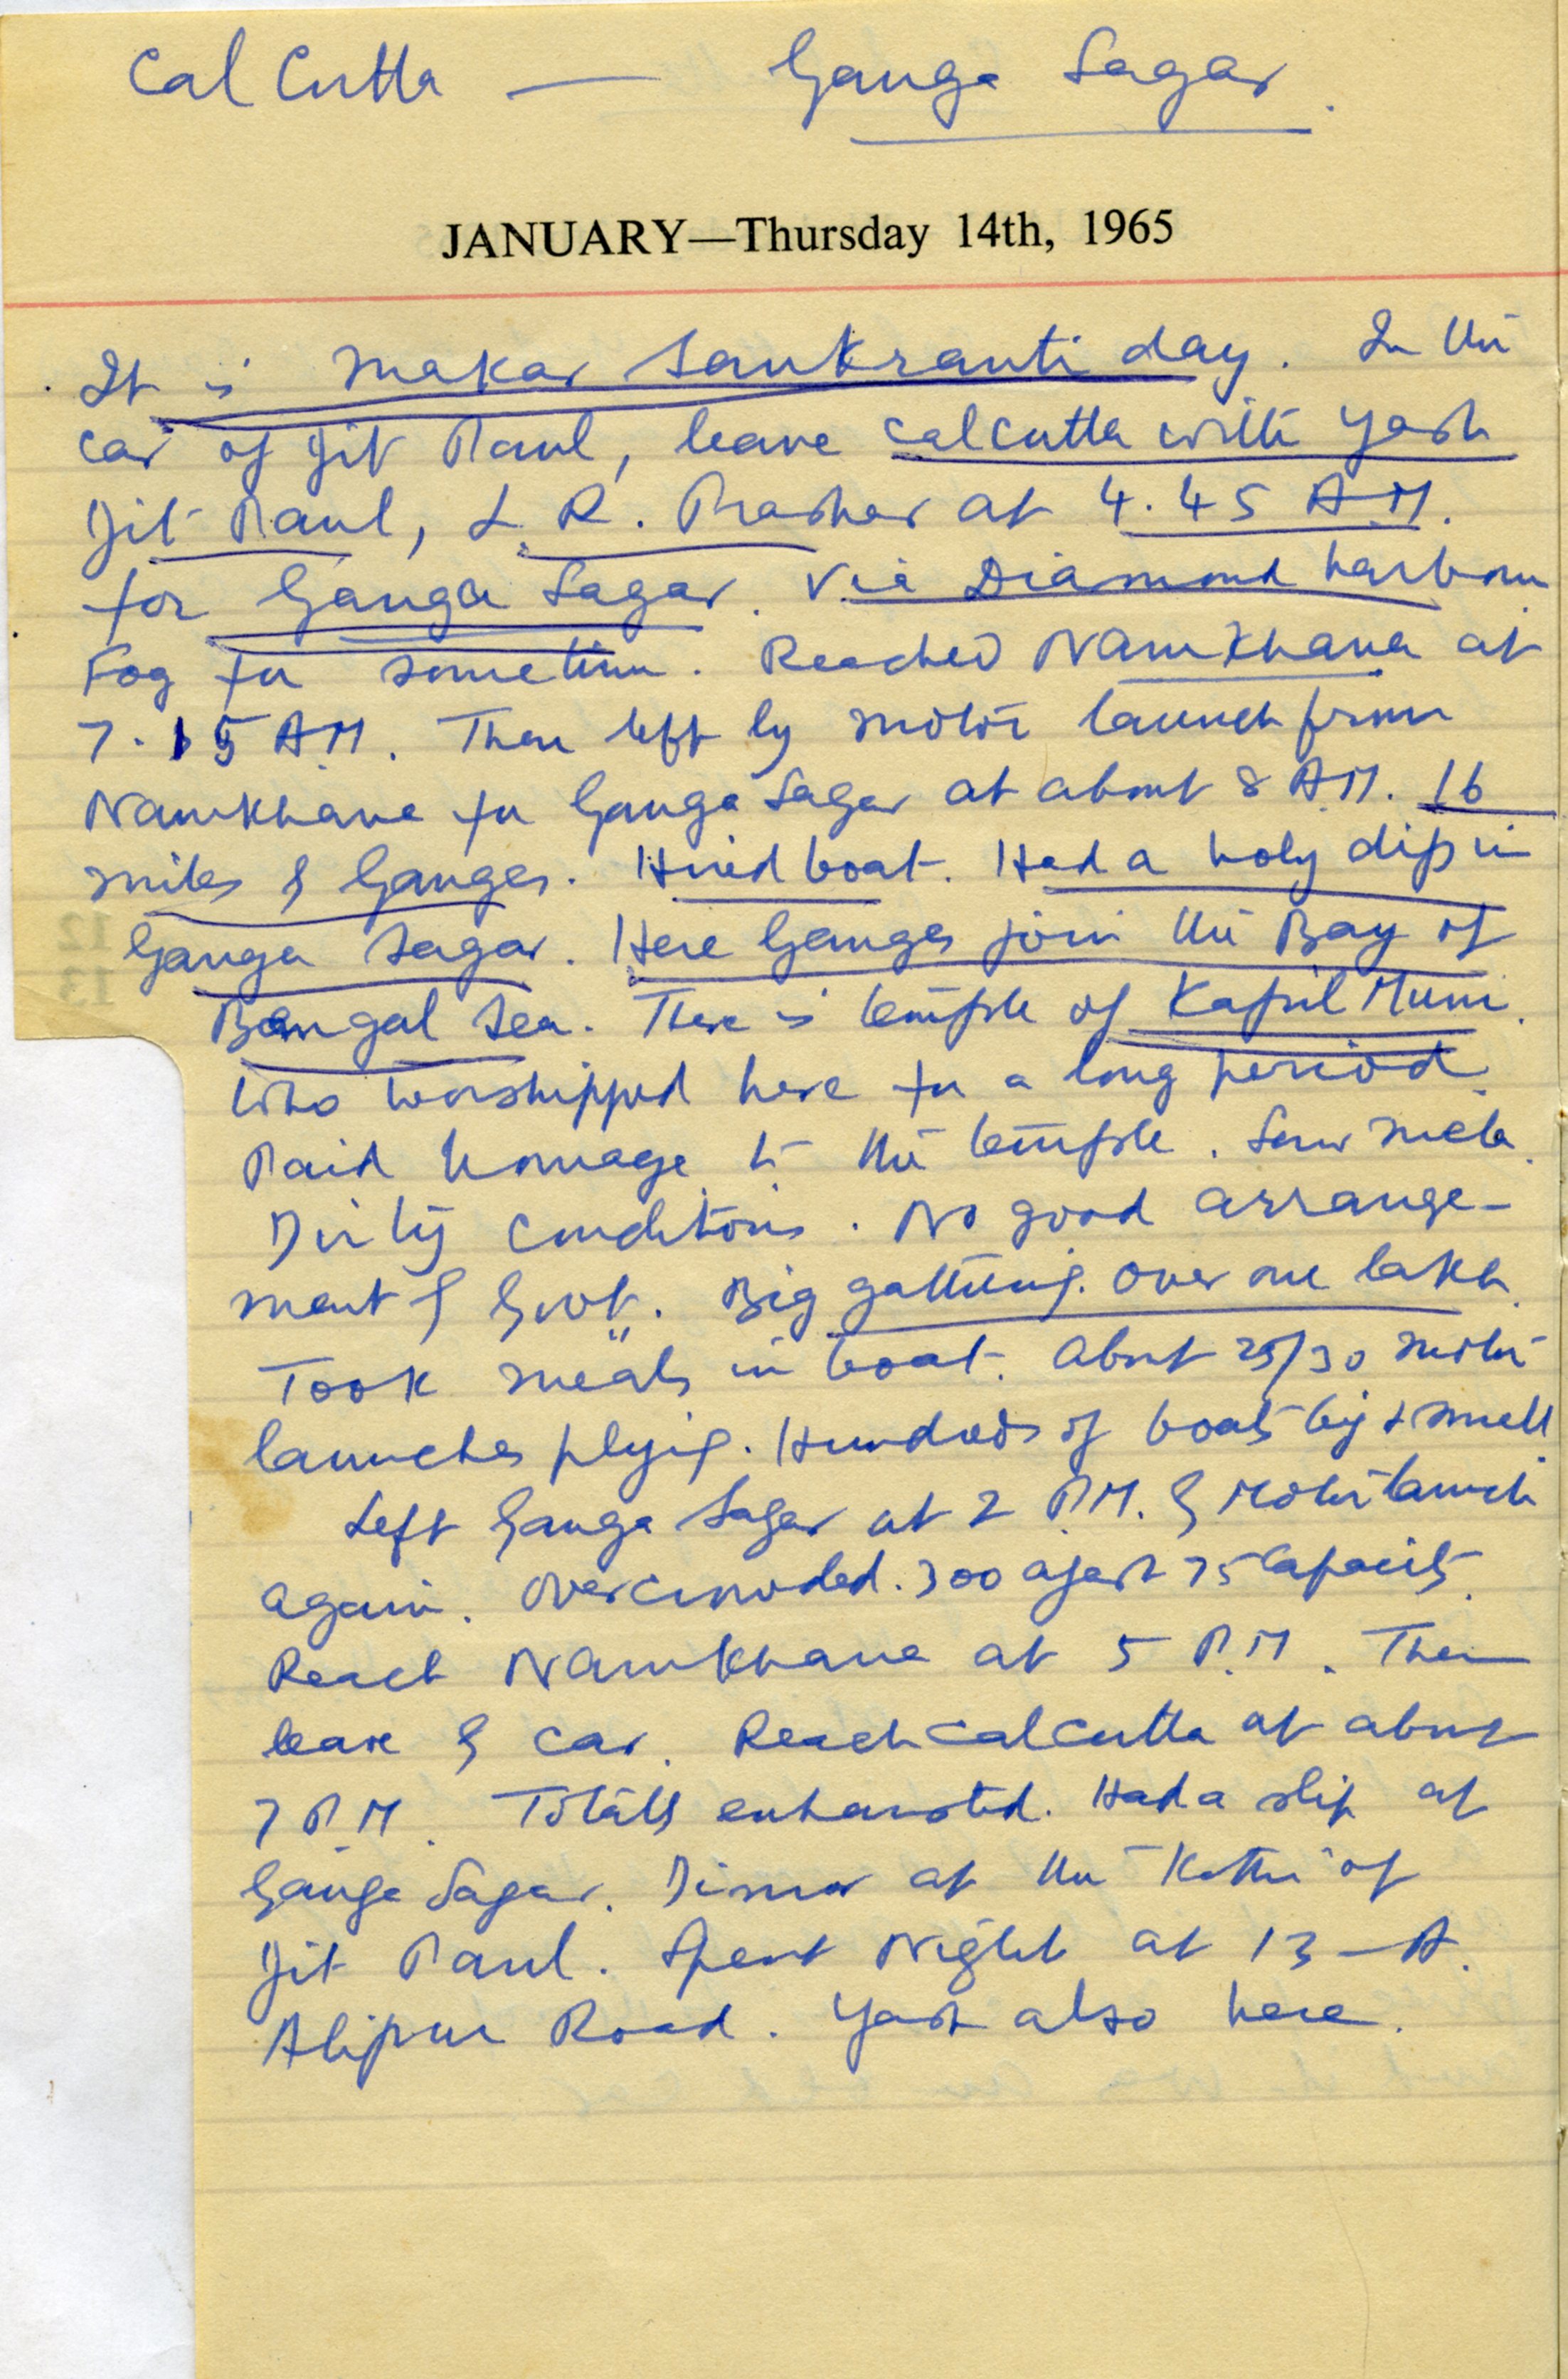 Calcutta — Ganga Sagar.
JANUARY—Thursday 14th, 1965
It is Makar Sankranti day. In the
car of Jit Paul, leave Calcutta with Yash
Jit Paul, L. R. Prasher at 4.45 A.M.
for Ganga Sagar. Via Diamond harbour
Fog for sometime. Reached Namkhana at
7.15 A.M. Then left by motor launch from
Namkhana for Ganga Sagar at about 8 A.M. 16
miles by Ganges. Hired boat. Had a holy dip in
Ganga Sagar. Here Ganges join the Bay of
Bangal Sea. There is temple of Kapil Muni.
Who worshipped here for a long period.
Paid homage to the temple. Saw mela.
Dirty conditions. No good arrange-
ment of Govt. Big gathering. Over one lakh.
Took meals in boat. About 25/30 motor
launches plying. Hundreds of boats big & small.
Left Ganga Sagar at 2 P.M. by Motor launch
again. Overcrowded. 300 agast 75 capacity.
Reach Namkhana at 5 P.M. Then
leave by car. Reach Calcutta at about
7 P.M. Totally exhausted. Had a slip at
Ganga Sagar. Dinner at the Kothi of
Jit Paul. Spent Night at 13-A.
Alipur Road. Yash also here.
12
13